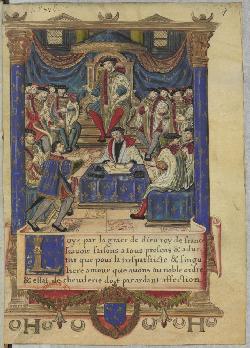 Loys par la grace de dieu roy de france
scavoir faisons a tous presens & adue
nir que pour la tresparfaicte & singu
liere amour que auons au noble ordre
& estat de cheualerie dont par ardant affection